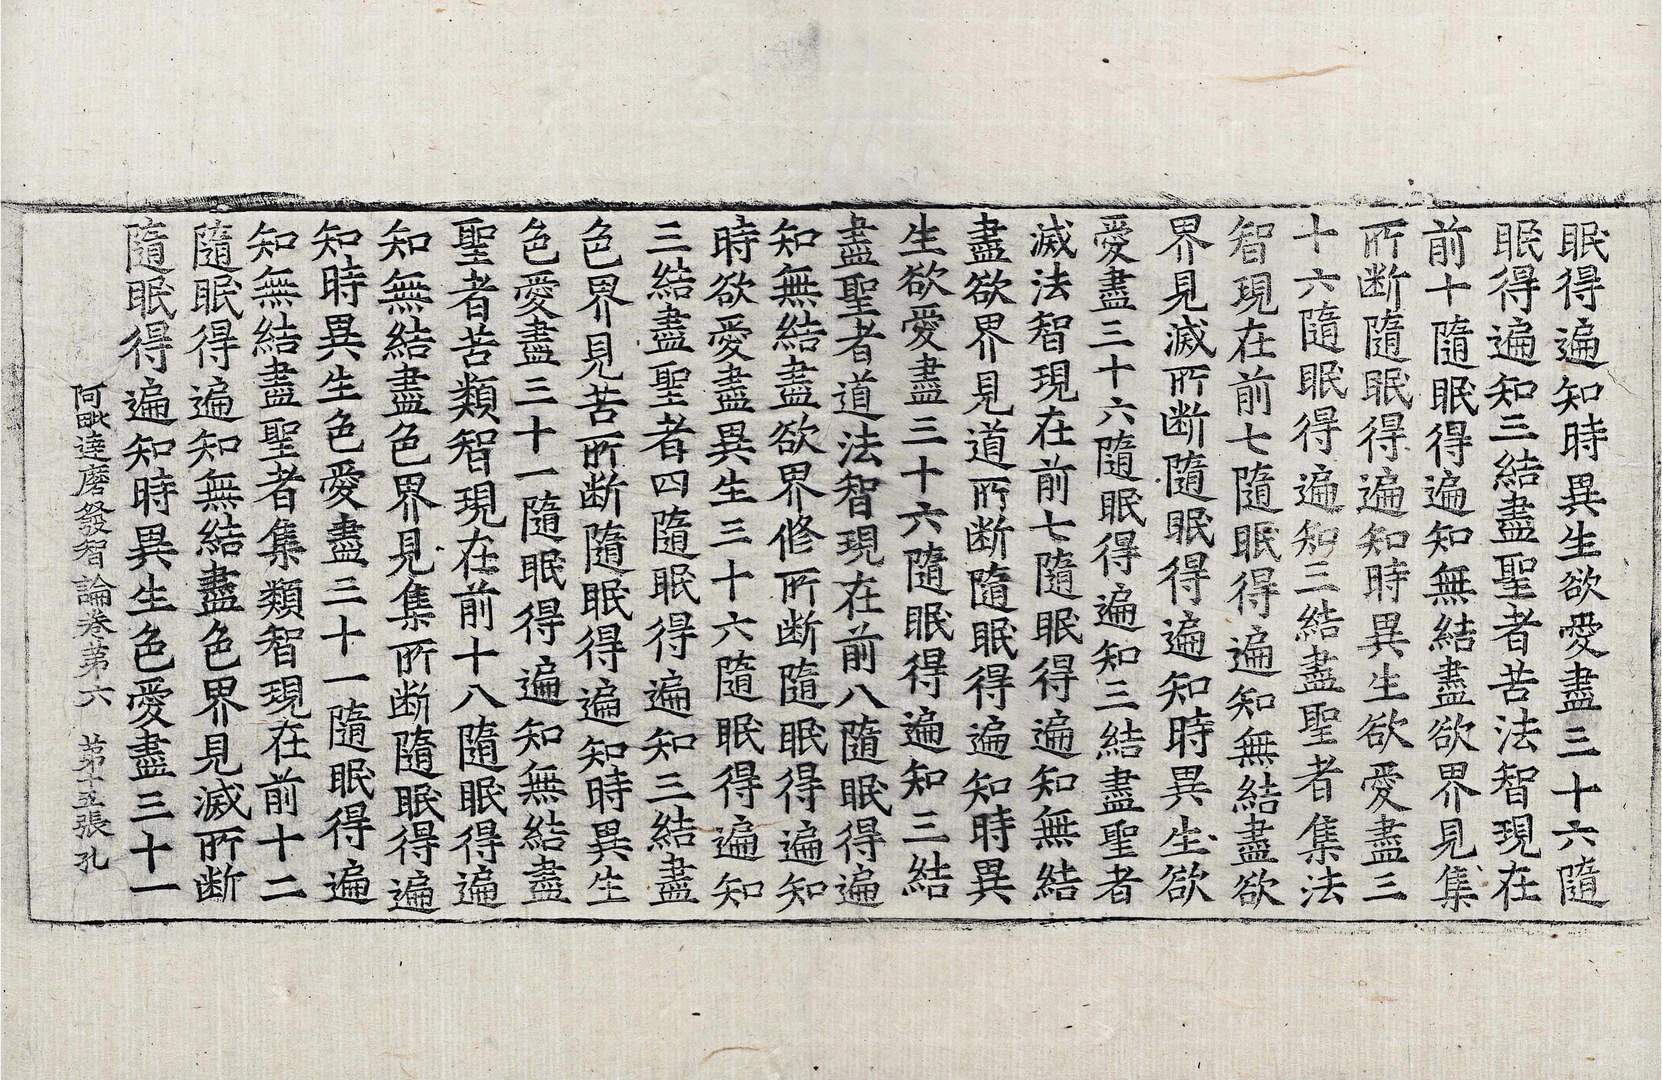 眠得遍知時異生欲愛盡三十六隨
眠得遍知三結盡聖者苦法智現在
前十隨眠得遍知無結盡欲界見集
所断隨眠得遍知時異生欲愛盡三
十六隨眠得遍知三結盡聖者集法
智現在前七隨眠得遍知無結盡欲
界見滅所断隨眠得遍知時異生欲
愛盡三十六隨眠得遍知三結盡聖者
滅法智現在前七隨眠得遍知無結
盡欲界見道所断隨眠得遍知時異
生欲愛盡三十六隨眠得遍知三結
盡聖者道法智現在前八隨眠得遍
知無結盡欲界修所断隨眠得遍知
時欲愛盡異生三十六隨眠得遍知
三結盡聖者四隨眠得遍知三結盡
色界見苦所断隨眠得遍知時異生
色愛盡三十一隨眠得遍知無結盡
聖者苦類智現在前十八隨眠得遍
知無結盡色界見集所断隨眠得遍
知時異生色愛盡三十一隨眠得遍
知無結盡聖者集類智現在前十二
隨眠得遍知無結盡色界見滅所断
隨眠得遍知時異生色愛盡三十一
阿毗達磨發智論卷第六 第十五張 孔